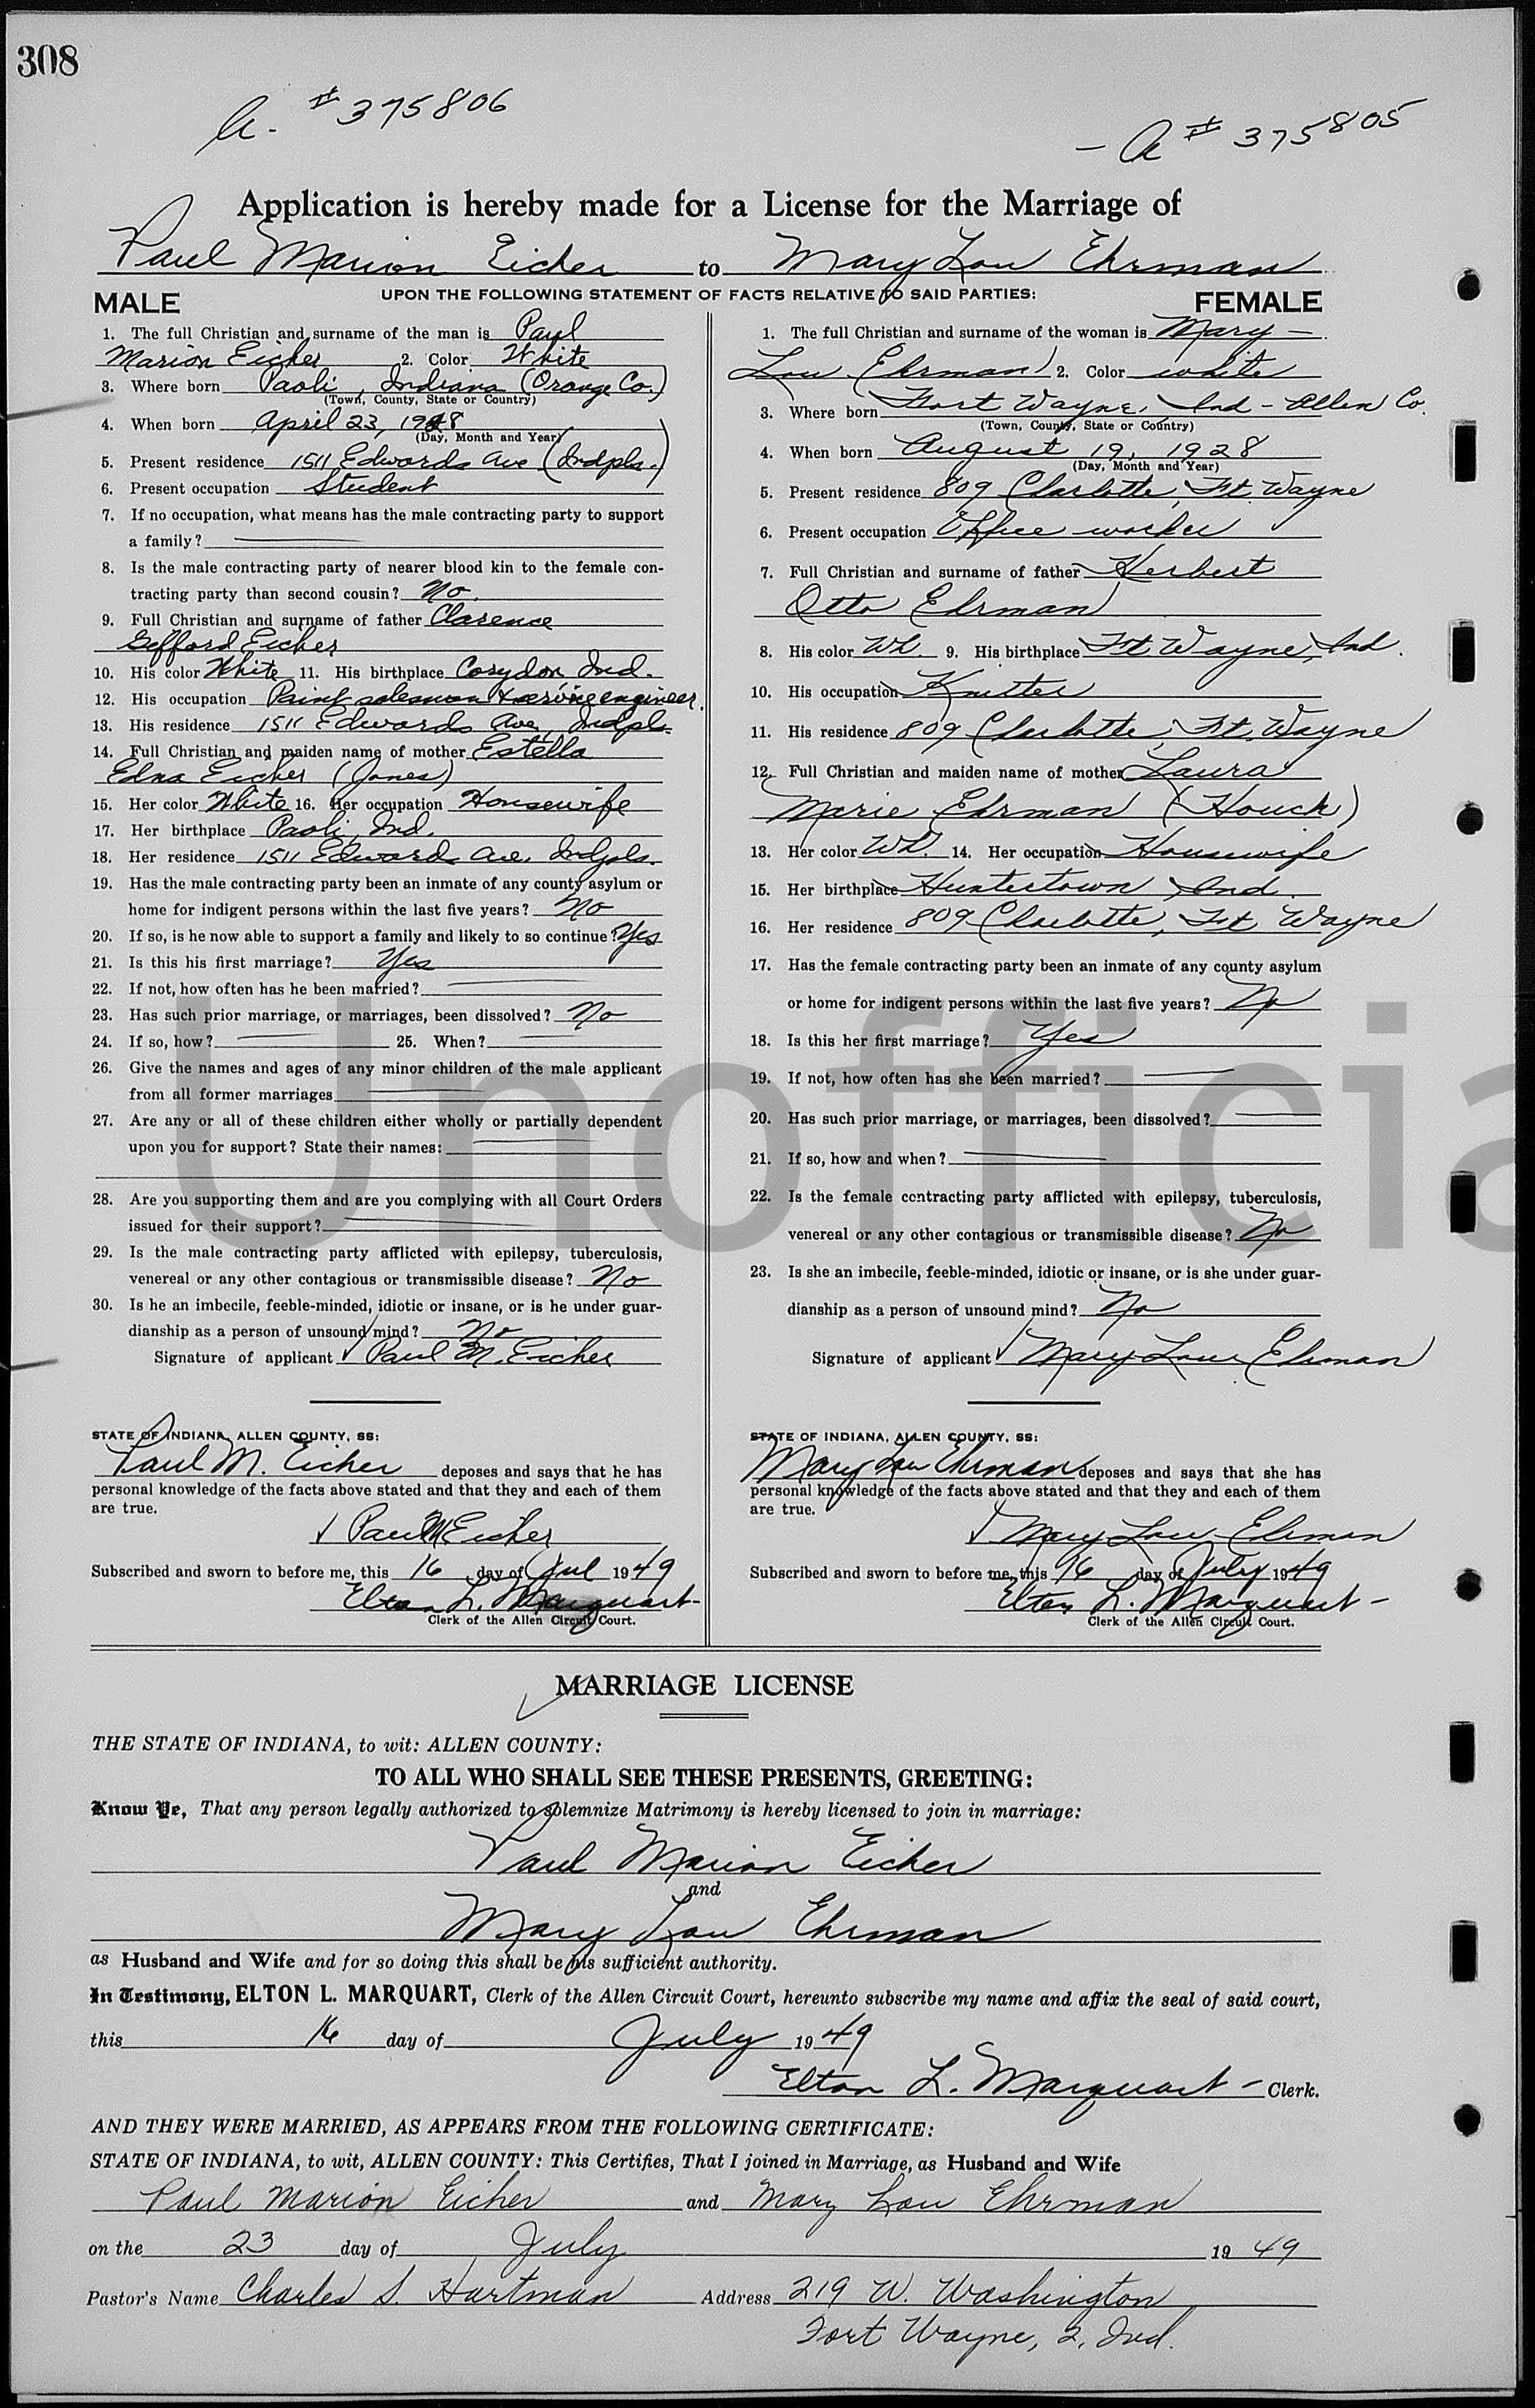 308
A. # 375806
- A # 375805
Application is hereby made for a License for the Marriage of
Paul Marion Eicher to Mary Lou Ehrman
UPON THE FOLLOWING STATEMENT OF FACTS RELATIVE TO SAID PARTIES:
MALE
1. The full Christian and surname of the man is Paul
Marion Eicher 2. Color White
3. Where born Paoli, Indiana (Orange Co.)
(Town, County, State or Country)
4. When born April 23, 1928
(Day, Month and Year)
5. Present residence 1511 Edwards Ave (Indpls.)
6. Present occupation Student
7. If no occupation, what means has the male contracting party to support
a family?
8. Is the male contracting party of nearer blood kin to the female con-
tracting party than second cousin? No.
9. Full Christian and surname of father Clarence
Gifford Eicher
10. His color White 11. His birthplace Corydon Ind.
12. His occupation Paint salesman & service engineer.
13. His residence 1511 Edwards Ave, Indpls.
14. Full Christian and maiden name of mother Estella
Edna Eicher (Jones)
15. Her color White 16. Her occupation Housewife
17. Her birthplace Paoli, Ind.
18. Her residence 1511 Edwards Ave, Indpls.
19. Has the male contracting party been an inmate of any county asylum or
home for indigent persons within the last five years? No
20. If so, is he now able to support a family and likely to so continue? Yes
21. Is this his first marriage? Yes
22. If not, how often has he been married?
23. Has such prior marriage, or marriages, been dissolved? No
24. If so, how? 25. When?
26. Give the names and ages of any minor children of the male applicant
from all former marriages
27. Are any or all of these children either wholly or partially dependent
upon you for support? State their names:
28. Are you supporting them and are you complying with all Court Orders
issued for their support?
29. Is the male contracting party afflicted with epilepsy, tuberculosis,
venereal or any other contagious or transmissible disease? No
30. Is he an imbecile, feeble-minded, idiotic or insane, or is he under guar-
dianship as a person of unsound mind? No
Signature of applicant Paul M. Eicher
STATE OF INDIANA, ALLEN COUNTY, SS:
Paul M. Eicher deposes and says that he has
personal knowledge of the facts above stated and that they and each of them
are true.
Paul M Eicher
Subscribed and sworn to before me, this 16 day of Jul 1949
Elton L. Marquart
Clerk of the Allen Circuit Court.
FEMALE
1. The full Christian and surname of the woman is Mary
Lou Ehrman 2. Color white
3. Where born Fort Wayne, Ind - Allen Co.
(Town, County, State or Country)
4. When born August 19, 1928
(Day, Month and Year)
5. Present residence 809 Charlotte, Ft. Wayne
6. Present occupation Office worker
7. Full Christian and surname of father Herbert
Otto Ehrman
8. His color Wh 9. His birthplace Ft Wayne, Ind.
10. His occupation Knitter
11. His residence 809 Charlotte, Ft. Wayne
12. Full Christian and maiden name of mother Laura
Marie Ehrman (Houck)
13. Her color Wh. 14. Her occupation Housewife
15. Her birthplace Huntertown, Ind.
16. Her residence 809 Charlotte, Ft. Wayne
17. Has the female contracting party been an inmate of any county asylum
or home for indigent persons within the last five years? No
18. Is this her first marriage? Yes
19. If not, how often has she been married?
20. Has such prior marriage, or marriages, been dissolved?
21. If so, how and when?
22. Is the female contracting party afflicted with epilepsy, tuberculosis,
venereal or any other contagious or transmissible disease? No
23. Is she an imbecile, feeble-minded, idiotic or insane, or is she under guar-
dianship as a person of unsound mind? No
Signature of applicant Mary Lou Ehrman
STATE OF INDIANA, ALLEN COUNTY, SS:
Mary Lou Ehrman deposes and says that she has
personal knowledge of the facts above stated and that they and each of them
are true.
Mary Lou Ehrman
Subscribed and sworn to before me, this 16 day of July 1949
Elton L. Marquart -
Clerk of the Allen Circuit Court.
Unofficia
MARRIAGE LICENSE
THE STATE OF INDIANA, to wit: ALLEN COUNTY:
TO ALL WHO SHALL SEE THESE PRESENTS, GREETING:
Know Ye, That any person legally authorized to solemnize Matrimony is hereby licensed to join in marriage:
Paul Marion Eicher
and
Mary Lou Ehrman
as Husband and Wife and for so doing this shall be his sufficient authority.
In Testimony, ELTON L. MARQUART, Clerk of the Allen Circuit Court, hereunto subscribe my name and affix the seal of said court,
this 16 day of July 1949
Elton L. Marquart - Clerk.
AND THEY WERE MARRIED, AS APPEARS FROM THE FOLLOWING CERTIFICATE:
STATE OF INDIANA, to wit, ALLEN COUNTY: This Certifies, That I joined in Marriage, as Husband and Wife
Paul Marion Eicher and Mary Lou Ehrman
on the 23 day of July 1949
Pastor's Name Charles S. Hartman Address 219 W. Washington
Fort Wayne, 2, Ind.